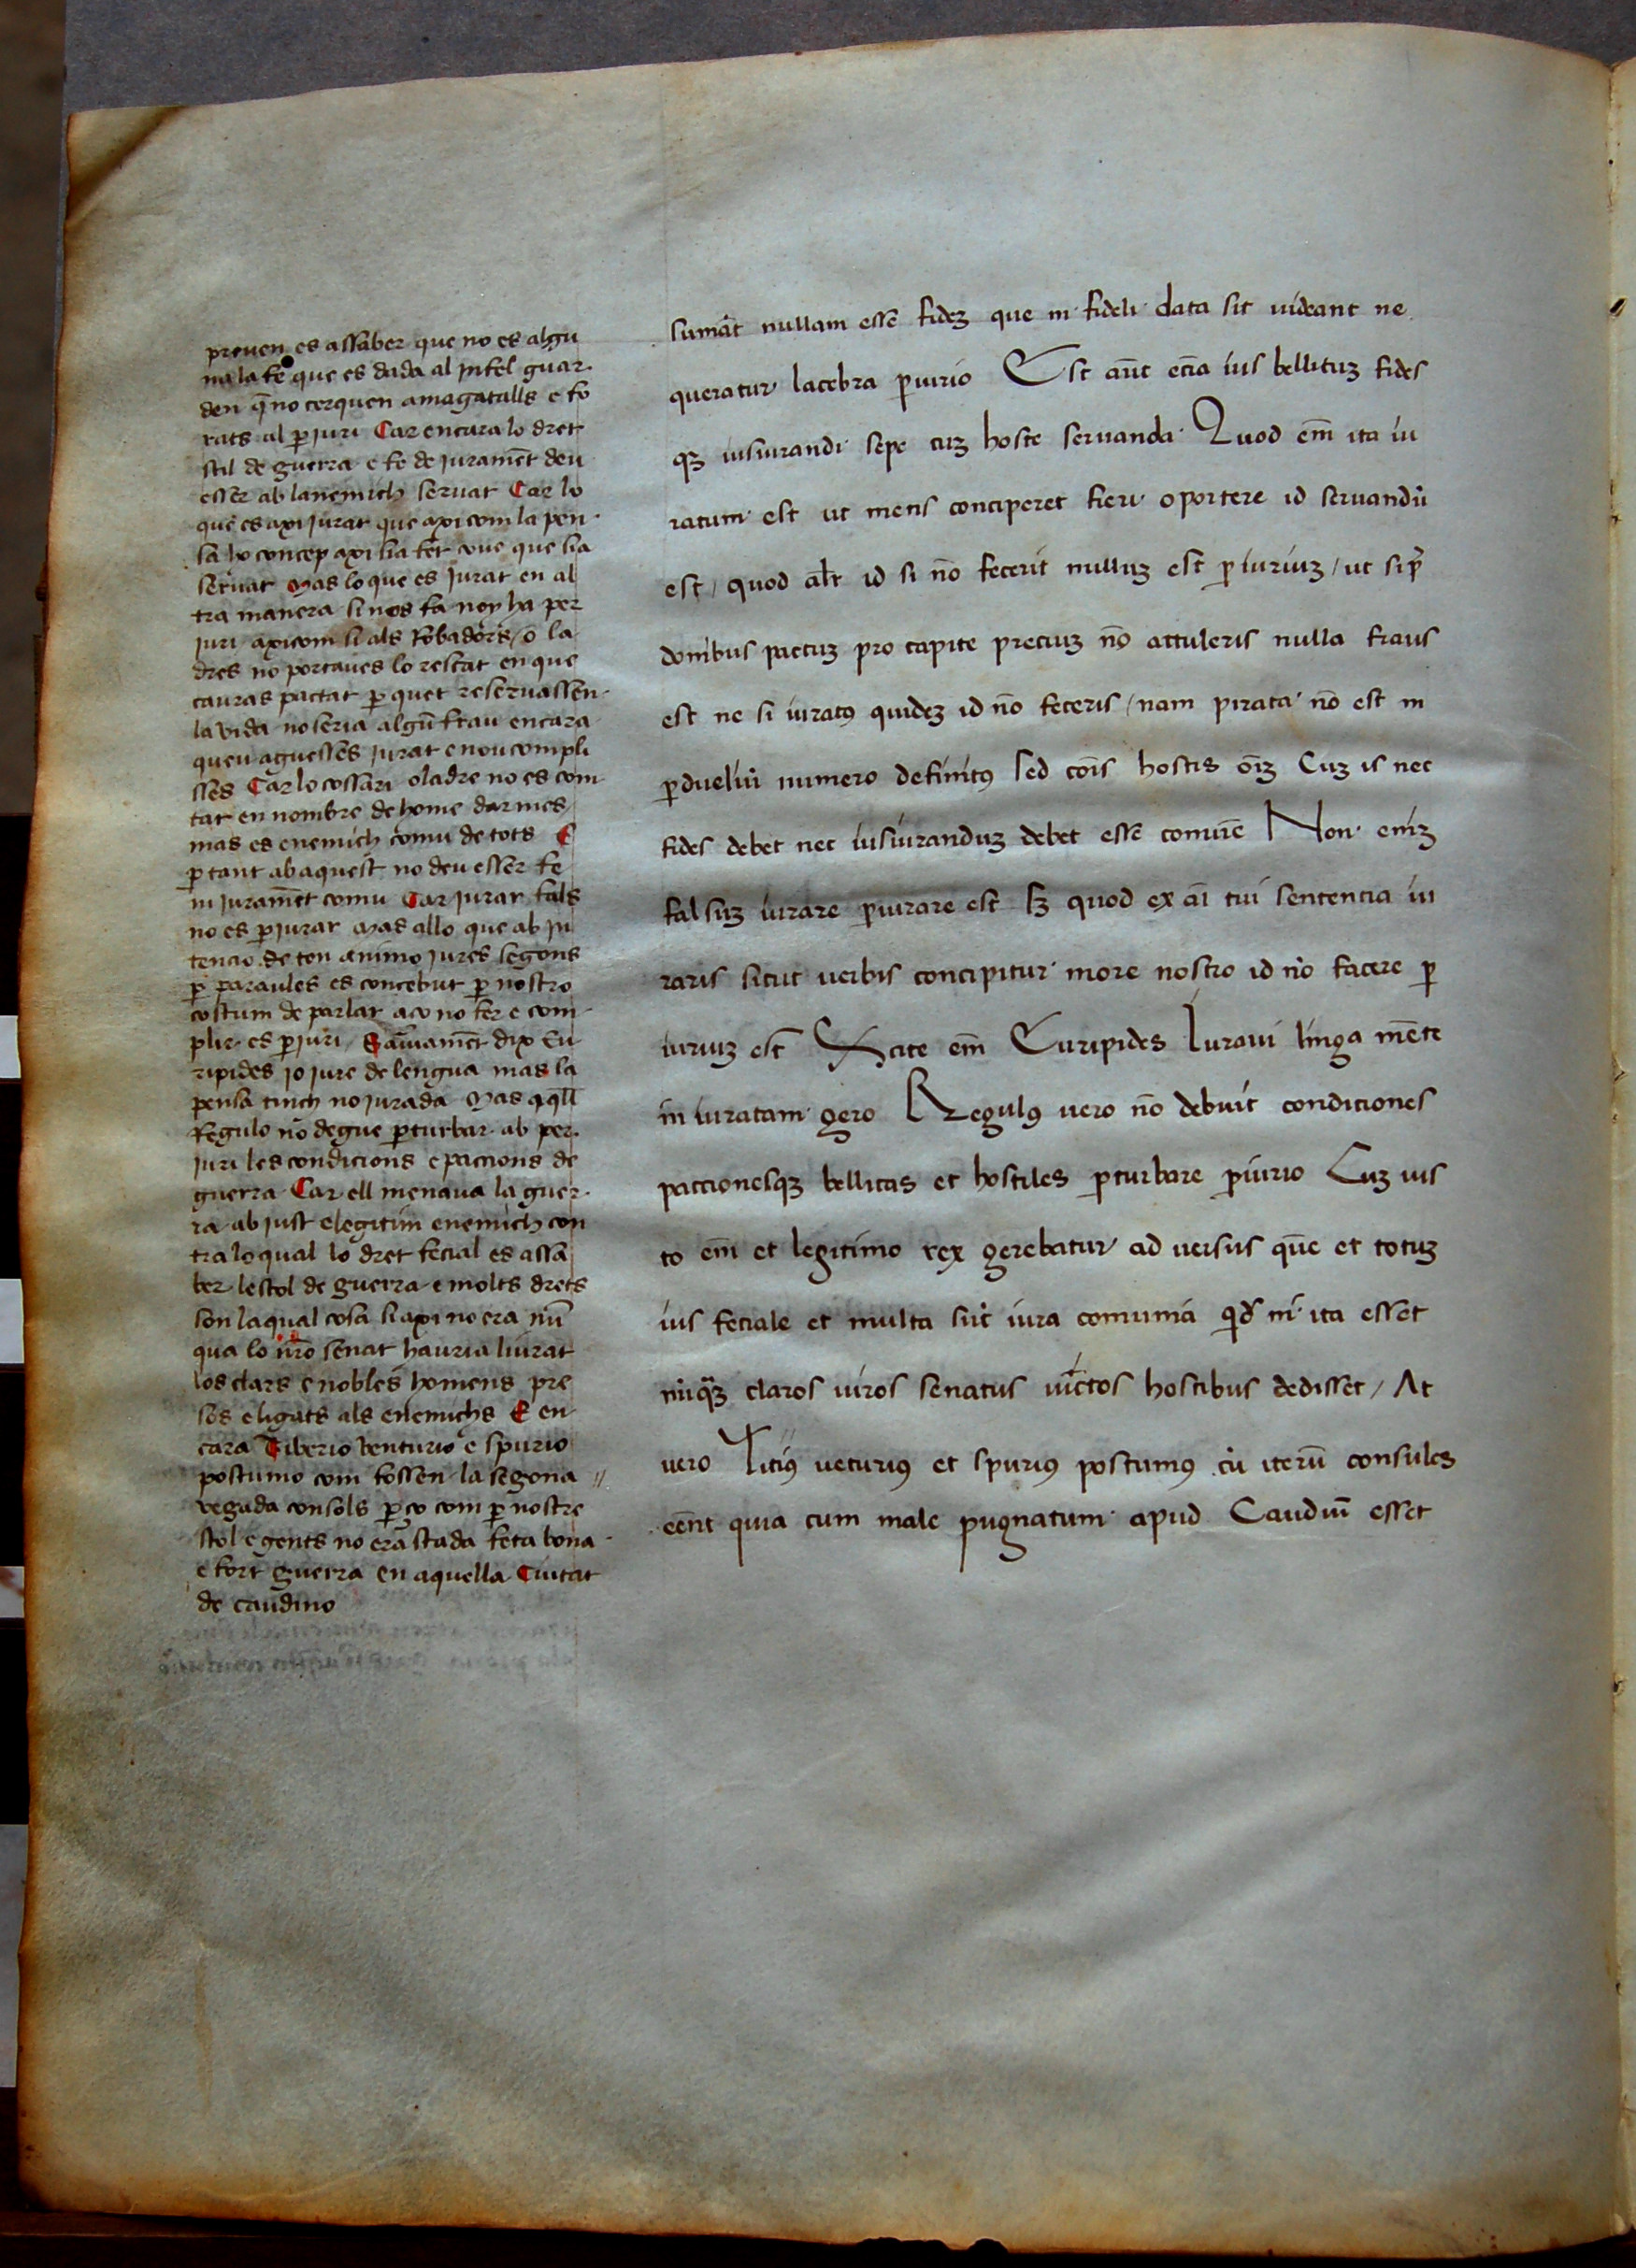 preuen es assaber que no es algu
na la fe que es dada al infel guar
den q̄ no cerquen amagatalls e fo
rats al ꝑjuri Car encara lo dret
stil de guerra e fe de juramēt deu
esser ab lanemich seruat Car lo
que es axi jurat que axi com la pen
sa ho concep axi sia fet coue que sia
seruat Mas lo que es jurat en al
tra manera si nos fa noy ha per
juri axi com si als Robadors / o la
dres no portaues lo rescat en que
tauras pactat ꝑ quet reseruassen
la vida no seria algū frau encara
queu aguesses jurat e nou compli
sses Car lo cossari o ladre no es com
tat en nombre de home darmes
mas es enemich comu de tots E
ꝑ tant ab aquest no deu esser fe
ni juramēt comu Car jurar fals
no es ꝑjurar Mas allo que ab in
tencio de ton animo jures segons
ꝑ paraules es concebut ꝑ nostro
costum de parlar aço no fer e com
plir es ꝑjuri / Sauiamēt dix Eu
ripides jo jure de lengua mas la
pensa tinch no jurada Mas
Regulo no degue ꝑturbar ab per
juri les condicions e paccions de
guerra Car ell menaua la guer
ra ab just e legitim enemich con
tra lo qual lo dret fecial es assa
ber lestol de guerra e molts drets
son la qual cosa si axi no era nū
qua lo nr̄o senat hauria liurat
los clars e nobles homens pre
sos e ligats als enemichs E en
cara Tiberio venturio e spurio
postumo com fossen la segona //
vegada consols ꝑ ço com ꝑ nostre
stol e gents no era stada feta bona
e fort guerra en aquella Ciutat
de caudino
sumāt nullam essē fidez que in fideli data sit uideant ne
queratur latebra ꝑiurio Est aūt eciā ius bellicuz fides
qꝫ iusiurandi sepe cuz hoste seruanda Quod em̄ ita iu
ratum est ut mens conciperet fieri oportere id seruandū
est / quod alr̄t id si nō fecerit nulluz est ꝑiuriuz / ut si p̄
donibus pactuz pro capite preciuz nō attuleris nulla fraus
est ne si iuratꝰ quidez id nō feceris / nam pirata nō est in
ꝑdueliū numero definitꝰ sed cōis hostis oīz Cuz is nec
fides debet nec iusiuranduz debet essē comunē Non enīz
falsuz iurare ꝑiurare est sz quod ex aī tui sentencia iu
raris sicut uerbis concipitur more nostro id nō facere ꝑ
iuriuz est Scite em̄ Euripides Iuraui linga mēte
in iuratam gero Regulꝰ uero nō debuit condiciones
paccionesqꝫ bellicas et hostiles ꝑturbare ꝑiurio Cuz ius
to em̄ et legitimo rex gerebatur ad uersus quē et totuz
ius feciale et multa sūt iura comunia qd̄ ni ita esset
nūq̄z claros uiros senatus uictos hostibus dedisset / At
uero Titiꝰ ueturiꝰ et spuriꝰ postumꝰ cū iterū consules
eēnt quia cum male pugnatum apud Caudiū esset